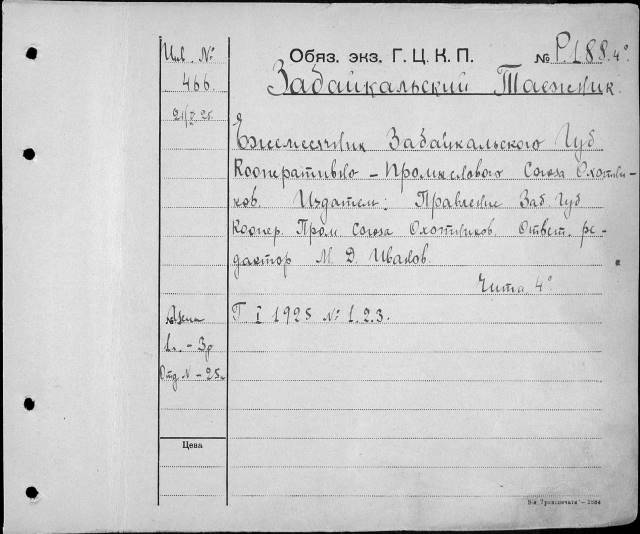 Обяз. экз. Г. Ц. К. П. № Р. 188. 4°
Забайкальский Таежник.
Ежемесячник Забайкальского Губ
Кооперативно – Промыслового Союза Охотни-
ков. Издатель: Правление Заб. Губ
Коопер. Пром. Союза Охотников. Ответ. ре-
дактор М. Д. Иванов.
Чита. 4°
Г. I 1925 №: 1. 2. 3.
№:
466
1 г. – 3р
Отд. № – 25к
Цена